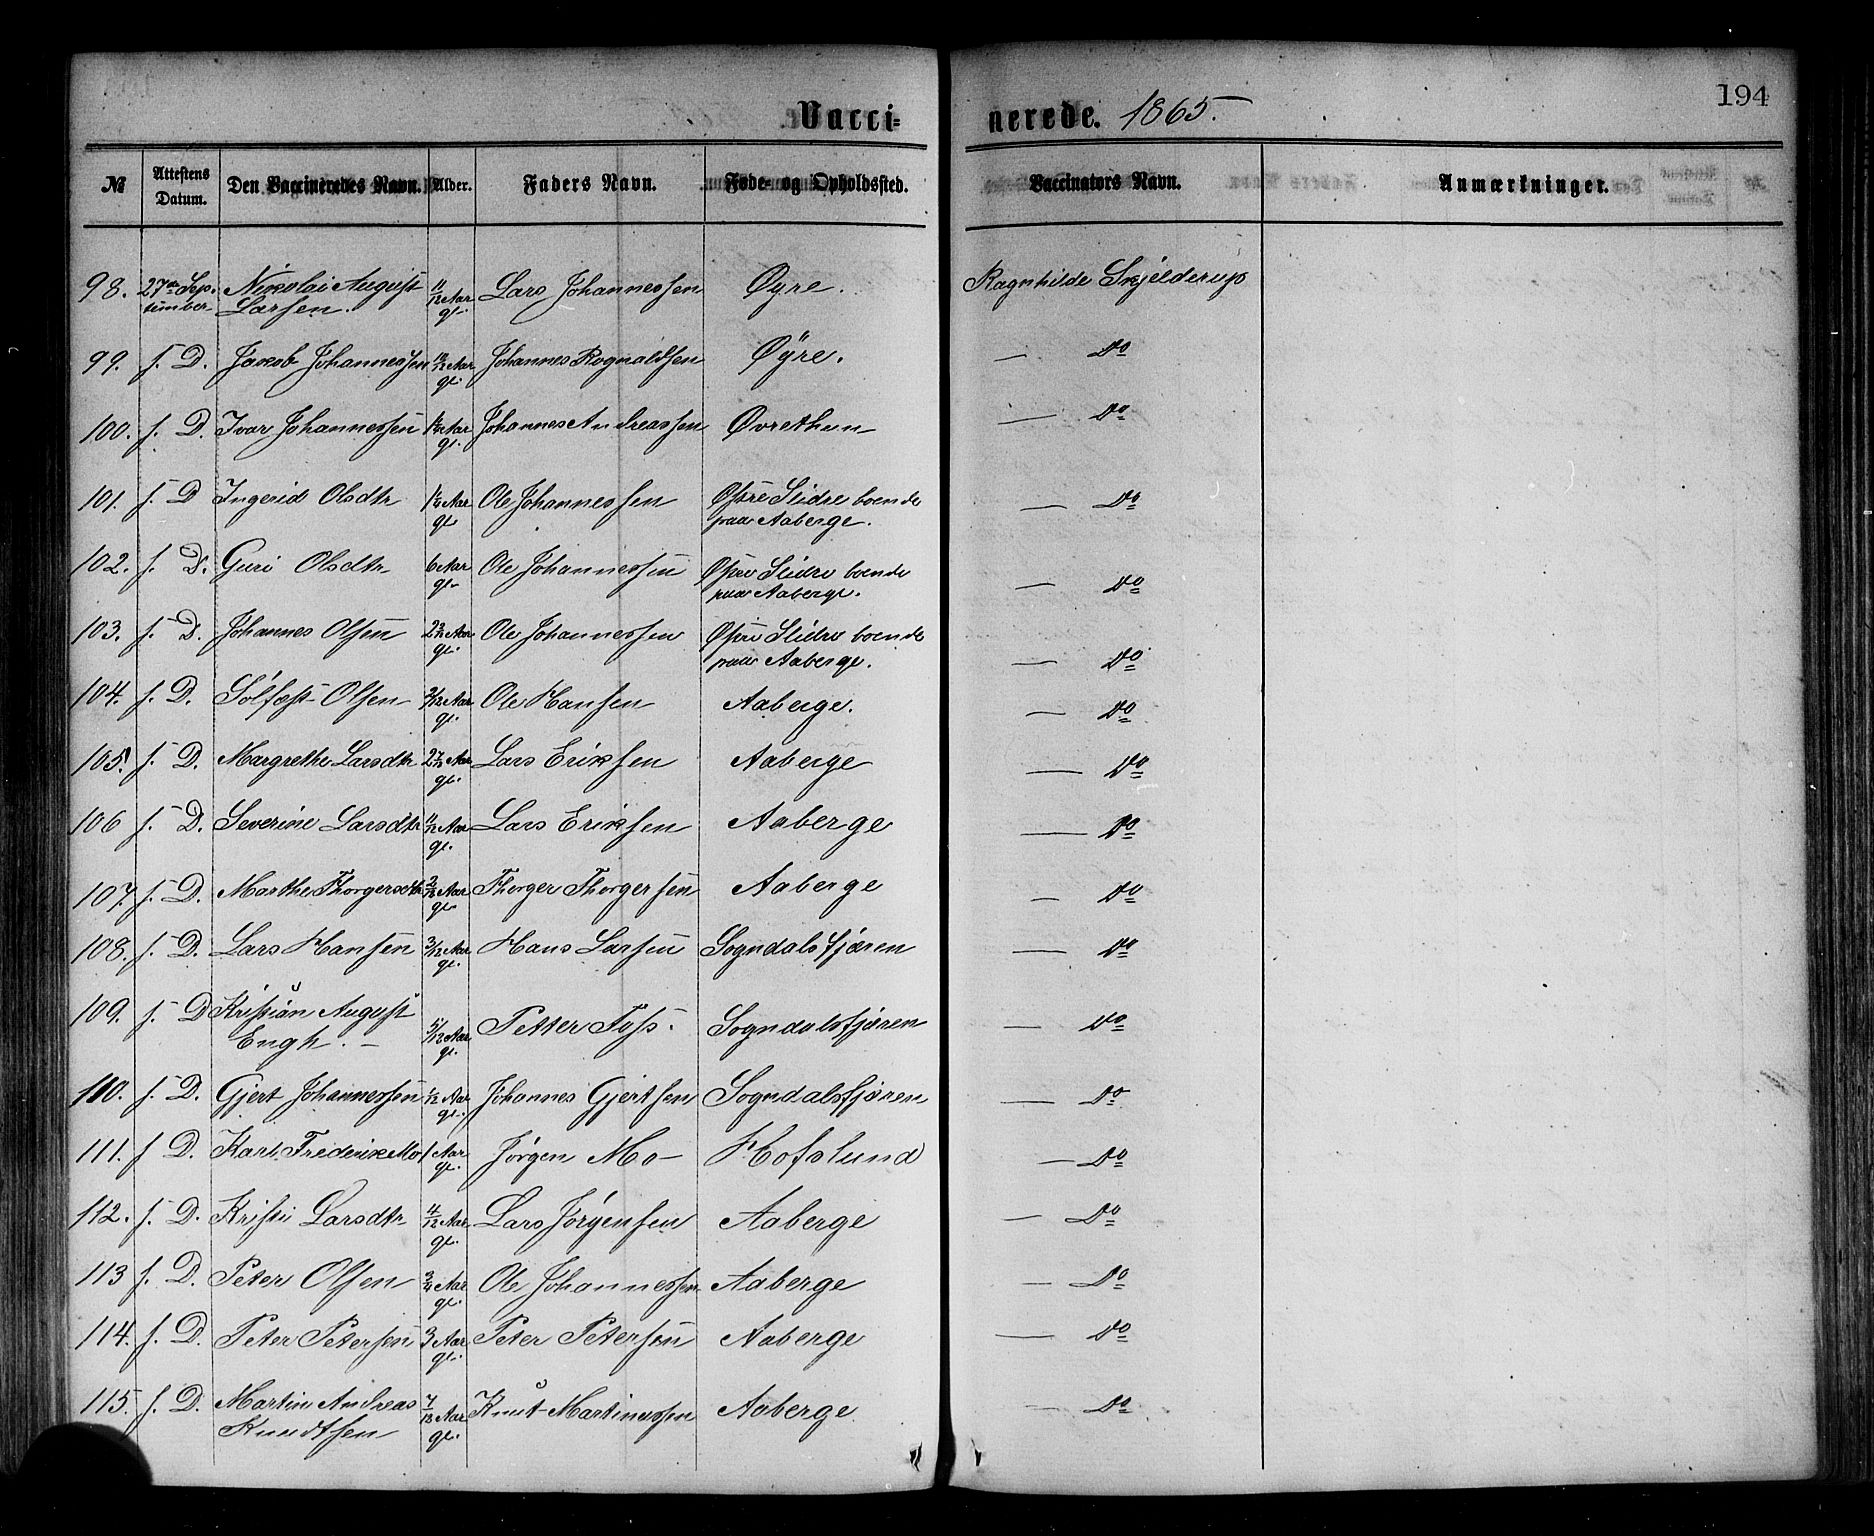 194
Vacci- nerede. 1865.
№ Attestens Datum. Den Vaccineredes Navn. Alder. Faders Navn. Føde- og Opholdssted. Vaccinators Navn. Anmærkninger.
98. 27de Sep- Nikolai August 11/12 Aar Lars Johannessen Øyre. Ragnhilde Skjelderup
tember Larsen. gl.
99. s. D. Jakob Johannessen 10/12 Aar Johannes Rognaldsen Øÿre. — Do
gl.
100. s. D. Ivar Johannessen Aar Johannes Andreassen Øvrethun — Do
gl.
101. s. D Ingerid Olsdtr Aar Ole Johannessen Øsre Slidre boende — Do
gl paa Aaberge.
102. s. D. Guri Olsdtr 6 Aar Ole Johannessen Øsre Slidre boende — Do
gl paa Aaberge.
103. s. D. Johannes Olsen Aar Ole Johannessen Øsre Slidre boende — Do
gl. paa Aaberge.
104. s. D. Sölfest Olsen 3/12 Aar Ole Hansen Aaberge. — Do
gl.
105. s. D. Margrethe Larsdtr 2 7/12 Aar Lars Eriksen Aaberge — Do
gl.
106 s. D. Severine Larsdtr 11/12 Aar Lars Eriksen Aaberge — Do
gl.
107. s. D. Marthe Thorgersdtr Aar Thorger Thorgersen Aaberge — Do
gl
108. s. D. Lars Hansen 3/12 Aar Hans Larsen Sogndalsfjæren — Do
gl.
109. s. D Kristian August 5/12 Aar Petter Foss. Sogndalsfjæren — Do
Engh. — gl.
110. s. D. Gjert Johannessen Aar Johannes Gjertsen Sogndalsfjæren — Do
gl.
111. s D. Karl Frederik Mo 1 Aar Jørgen Mo Hofslund — Do
gl.
112. s. D. Kristi Larsdtr 4/12 Aar Lars Jørgensen Aaberge — Do
gl.
113 s. D. Peter Olsen 3/4 Aar Ole Johannessen Aaberge — Do
gl.
114. s. D. Peter Petersen 3 Aar Peter Petersen Aaberge — Do
gl.
115. s. D. Martin Andreas Aar Knut Martinussen Aaberge — Do
Knudtsen gl.